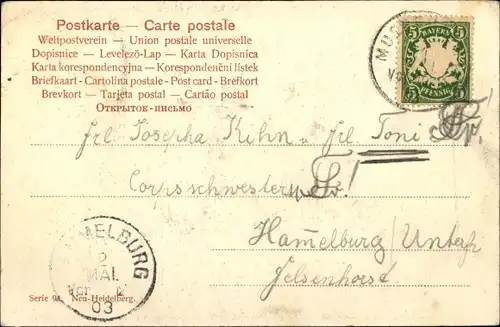 Postkarte — Carte postale
Weltpostverein — Union postale universelle
Dopisnice — Levelező-Lap — Karta Dopisnica
Karta korespondencyjna — Korespondenční lístek
Briefkaart - Cartolina postale - Post card - Brefkort
Brevkort — Tarjeta postal — Cartão postal
ОТКРЫТОЕ-ПИСЬМО
5 BAYERN 5
5 PFENNIG 5
Frl. Josepha Kihn u. Frl Toni
Corpsschwestern
Hamelburg/Unterfr
Felsenhorst
HAMELBURG
2
MAI.
Vor
03
Serie 94. Neu-Heidelberg.